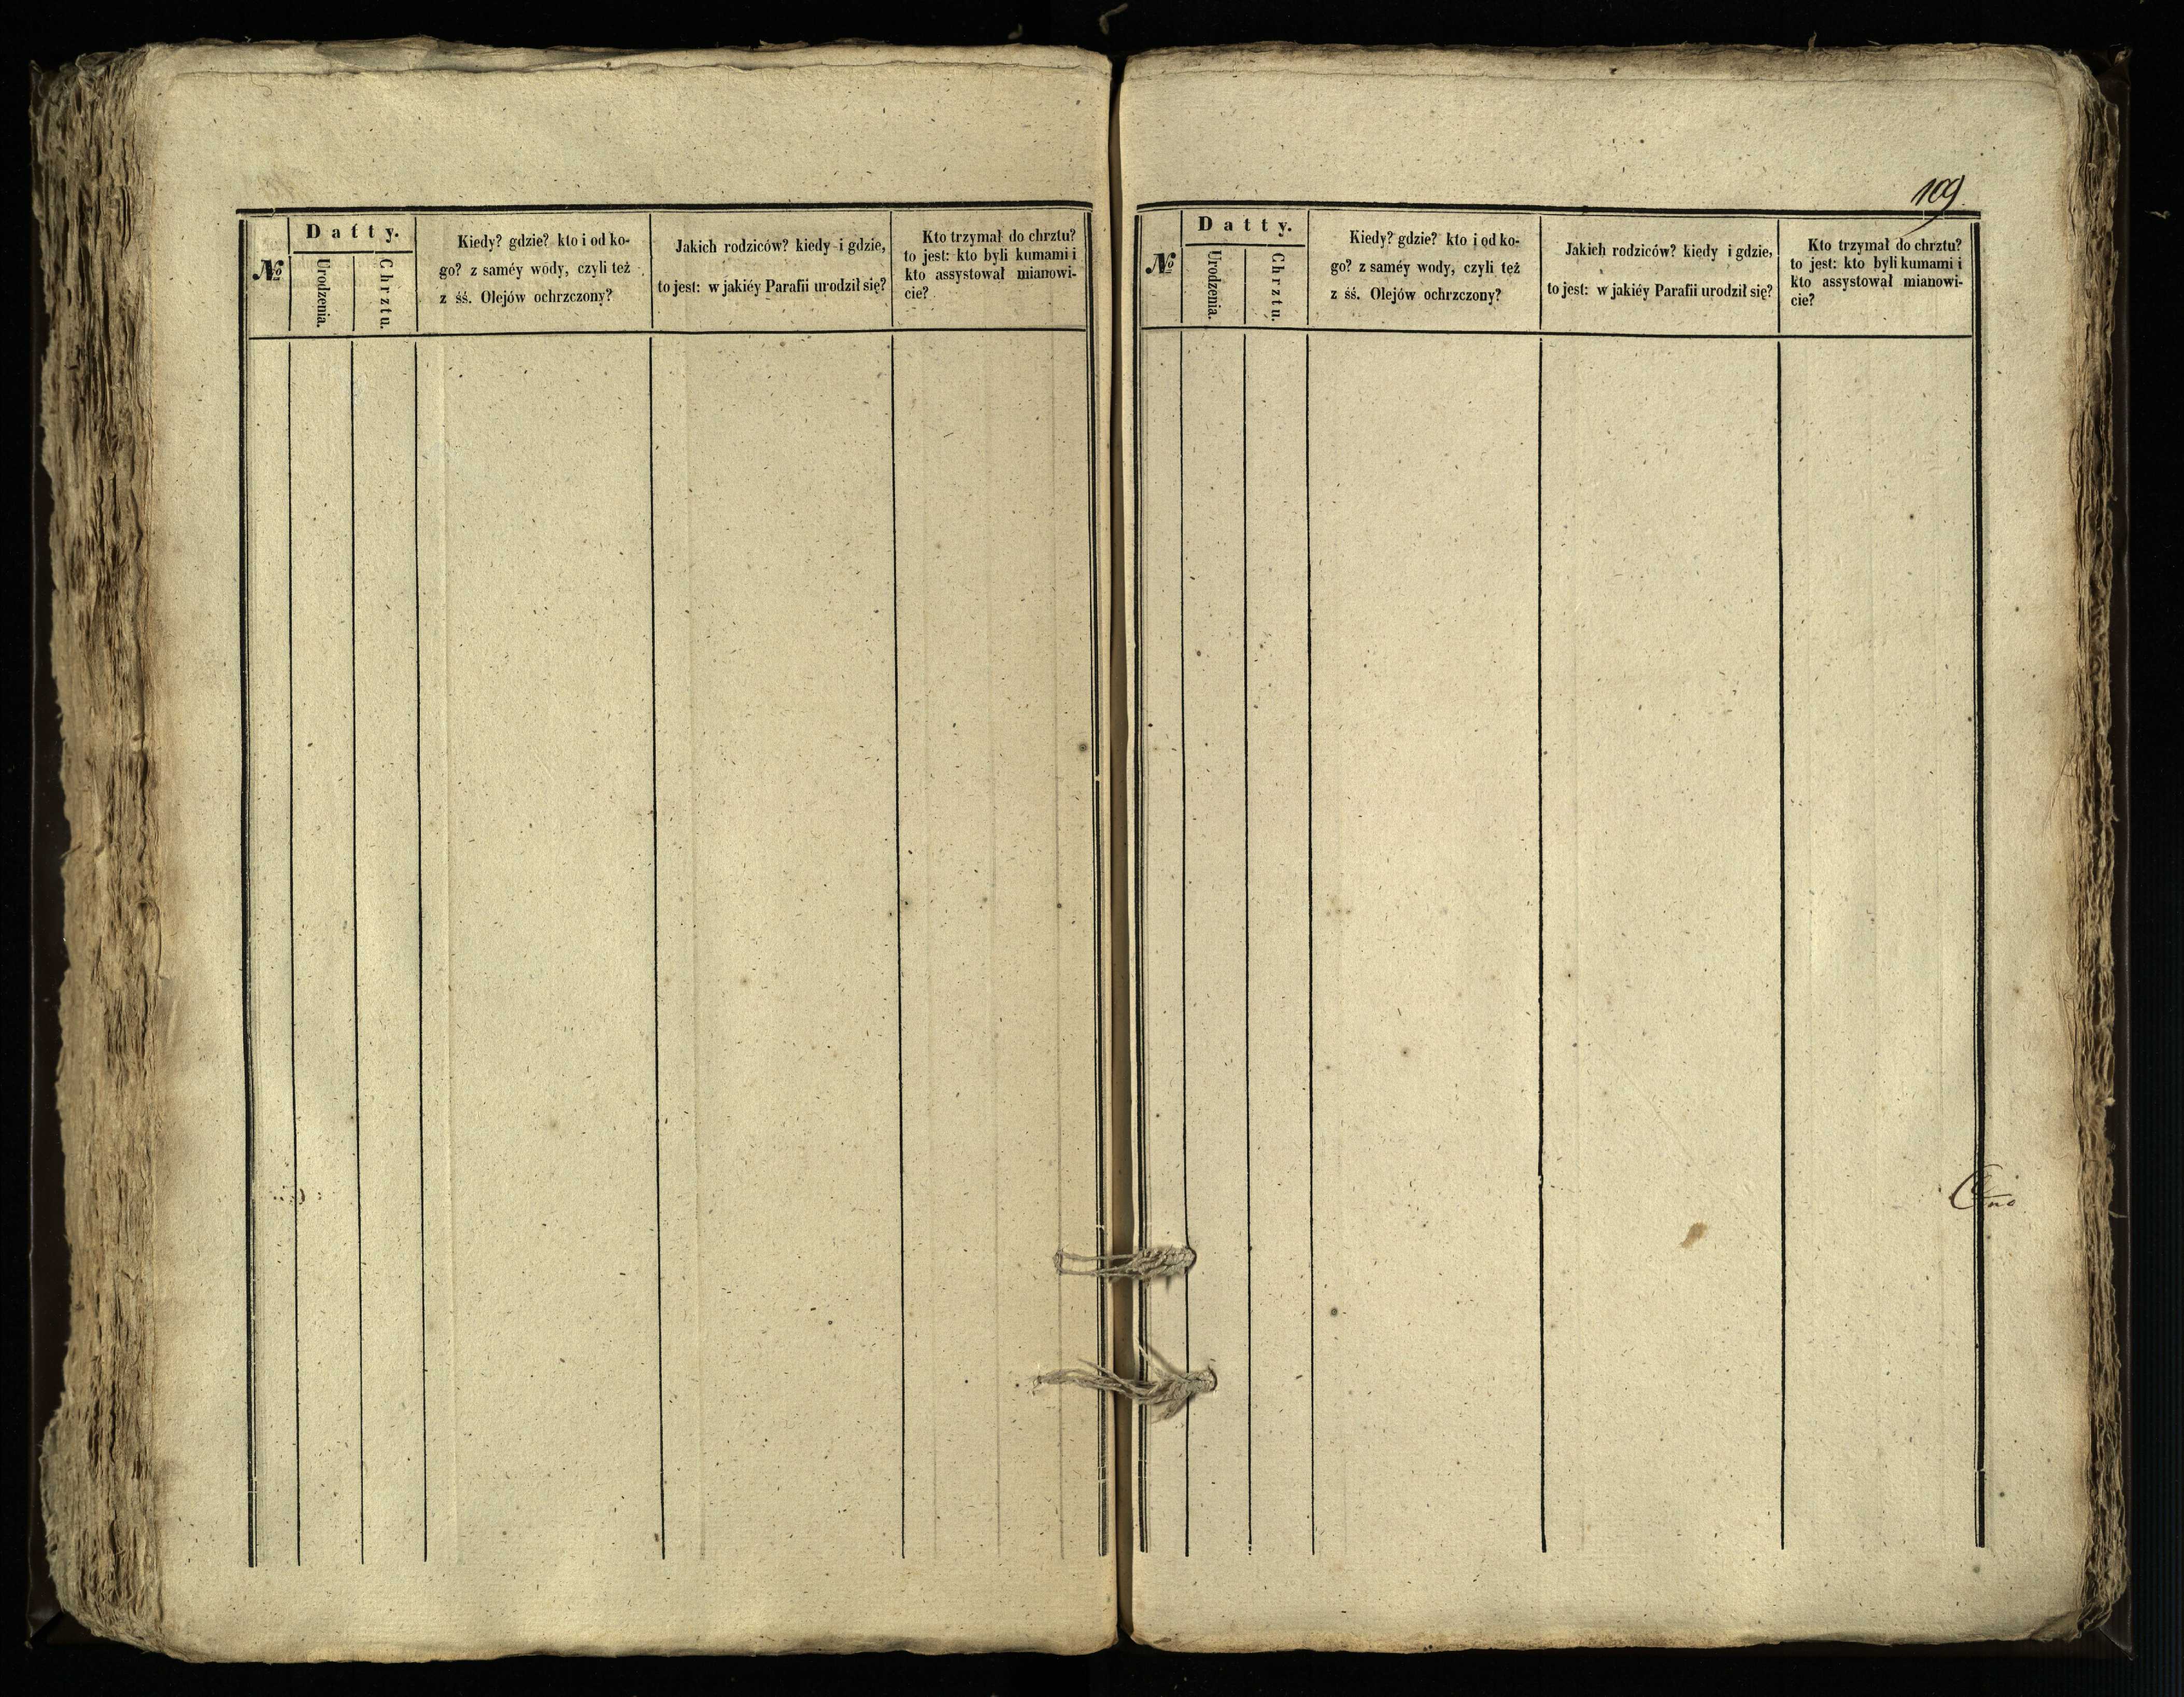 №
Datty.
Urodzenia.
Chrztu.
Kiedy? gdzie? kto i od ko-
go? z saméy wody, czyli też
z śś. Olejów ochrzczony?
Jakich rodziców? kiedy i gdzie,
to jest: w jakiéy Parafii urodził się?
Kto trzymał do chrztu?
to jest: kto byli kumami i
kto assystował mianowi-
cie?
109.
№
Datty.
Urodzenia.
Chrztu.
Kiedy? gdzie? kto i od ko-
go? z saméy wody, czyli też
z śś. Olejów ochrzczony?
Jakich rodziców? kiedy i gdzie,
to jest: w jakiéy Parafii urodził się?
Kto trzymał do chrztu?
to jest: kto byli kumami i
kto assystował mianowi-
cie?